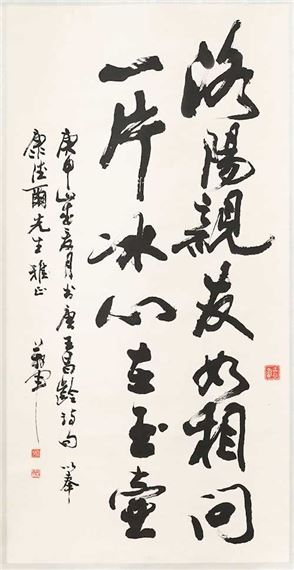 洛陽親友如相問
一片冰心在玉壺
庚申歲
月書唐王昌齡詩句以奉
康德爾先生雅正